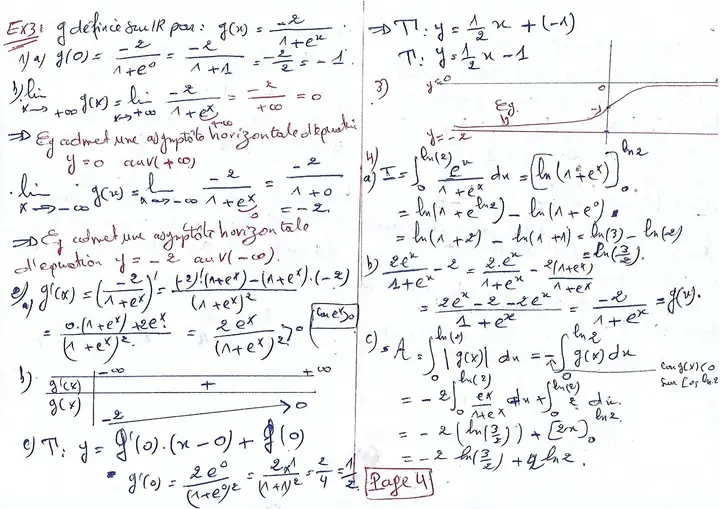 EX3: g définie sur IR par: g(x) = -2/(1+e^x)
1) a) g(0) = -2/(1+e^0) = -2/(1+1) = -2/2 = -1.
b) lim x→+∞ g(x) = lim x→+∞ -2/(1+e^x) = -2/+∞ = 0
⇒ Eg admet une asymptote horizontale d'équation
y=0 au v(+∞)
. lim x→-∞ g(x) = lim x→-∞ -2/(1+e^x) = -2/(1+0) = -2.
⇒ Eg admet une asymptote horizontale
d'equation y = -2 au v(-∞).
2) a) g'(x) = (-2/(1+e^x))' = ((-2)'(1+e^x) - (1+e^x)'.(-2))/(1+e^x)^2
= (0.(1+e^x) + 2e^x)/(1+e^x)^2 = 2e^x/(1+e^x)^2 > 0 (car e^x>0
b) -∞ +∞
g'(x) +
g(x) -2 → 0
c) T: y = g'(0).(x-0) + g(0)
g'(0) = 2e^0/(1+e^0)^2 = 2×1/(1+1)^2 = 2/4 = 1/2.
⇒ T: y = 1/2 x + (-1)
T: y = 1/2 x - 1
3) y=0 0
Eg -1
y=-2
4)
a) I = ∫_0^ln(2) e^x/(1+e^x) dx = [ln(1+e^x)]_0^ln2
= ln(1+e^ln2) - ln(1+e^0)
= ln(1+2) - ln(1+1) = ln(3) - ln(2)
= ln(3/2).
b) 2e^x/(1+e^x) - 2 = 2.e^x/(1+e^x) - 2(1+e^x)/(1+e^x)
= (2e^x - 2 - 2e^x)/(1+e^x) = -2/(1+e^x) = g(x).
c) A = ∫_0^ln(2) |g(x)| dx = -∫_0^ln2 g(x) dx
car g(x)<0 sur [0, ln2
= -2∫_0^ln(2) e^x/(1+e^x) dx + ∫_0^ln(2) 2 dx.
= -2(ln(3/2)) + [2x]_0^ln2
= -2 ln(3/2) + 2 ln2.
Page 4